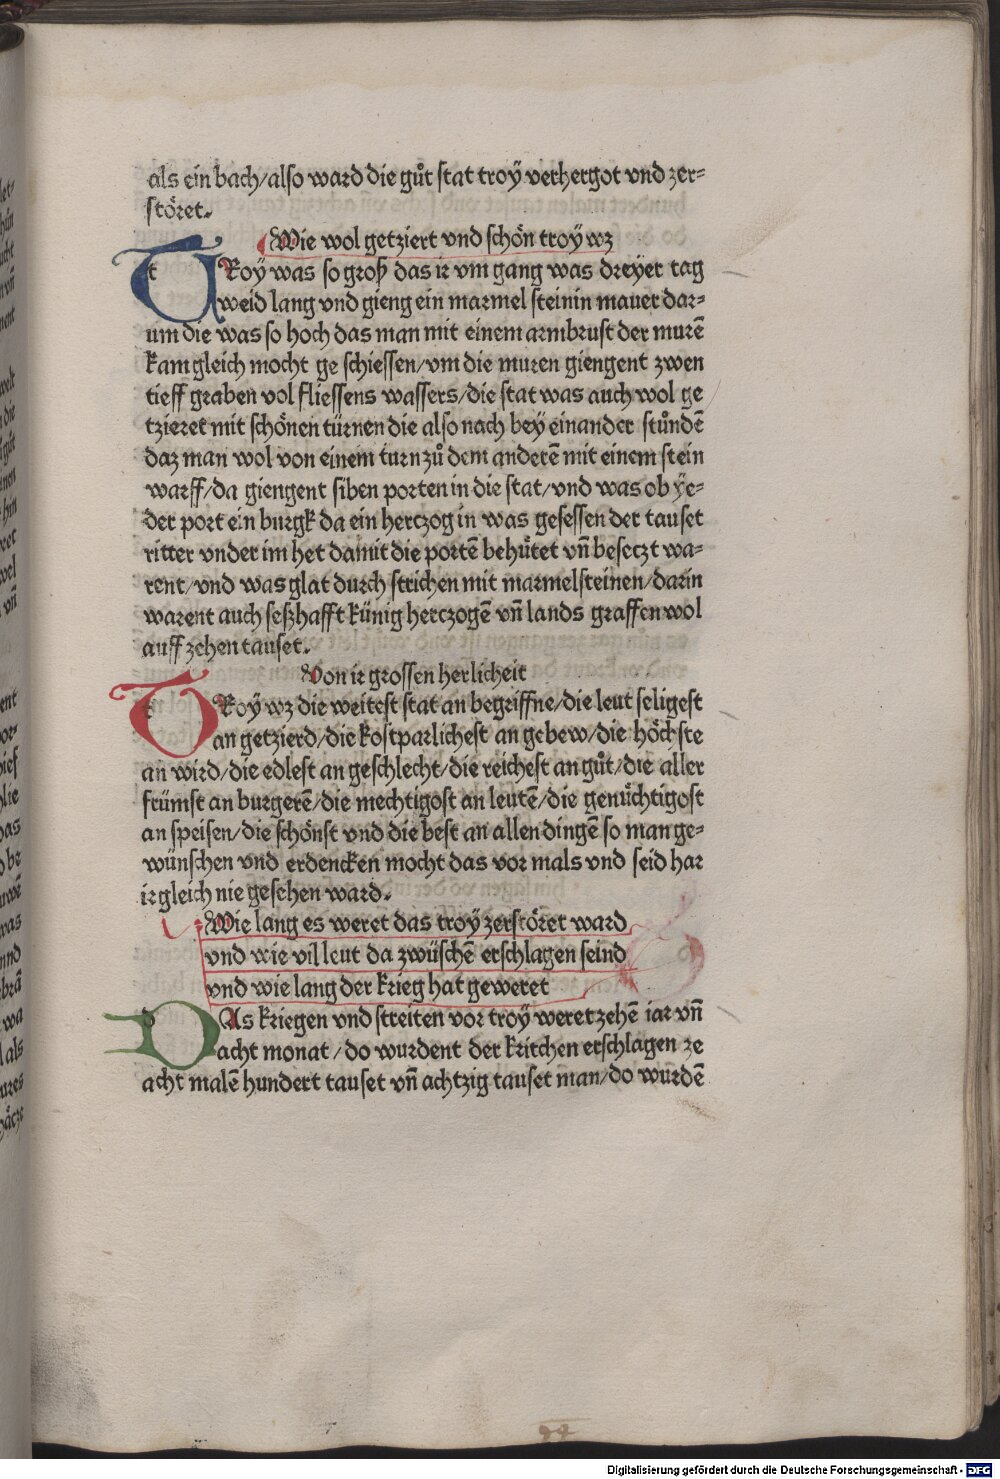 als ein bach/also ward die gůt stat troÿ verhergot vnd zer=
störet.
Wie wol getziert vnd schön troÿ wz
TRoÿ was so groß das ir vm gang was dreyer tag
weid lang vnd gieng ein marmel steinin mauer dar=
um die was so hoch das man mit einem armbrust der murē
kam gleich mocht ge schiessen/vm die muren giengent zwen
tieff graben vol fliessens wassers/die stat was auch wol ge
tzieret mit schönen türnen die also nach bey einander stůndē
daz man wol von einem turn zů dem anderē mit einem stein
warff/da giengent siben porten in die stat/vnd was ob ÿe=
der port ein burgk da ein hertzog in was gesessen der tauset
ritter vnder im het damit die portē behütet vn̄ besetzt wa=
rent/vnd was glat durch strichen mit marmelsteinen/darin
warent auch seßhafft künig hertzogē vn̄ lands graffen wol
auff zehen tauset.
Von ir grossen herlicheit
TRoÿ wz die weitest stat an begriffne/die leut seligest
an getzierd/die kostparlichest an gebew/die höchste
an wird/die edlest an geschlecht/die reichest an gůt/die aller
frümst an burgerē/die mechtigost an leutē/die genüchtigost
an speisen/die schönst vnd die best an allen dingē so man ge=
wünschen vnd erdencken mocht das vor mals vnd seid har
ir gleich nie gesehen ward.
Wie lang es weret das troÿ zerstöret ward
vnd wie vil leut da zwüschē erschlagen seind
vnd wie lang der krieg hat geweret
DAs kriegen vnd streiten vor troÿ weret zehē iar vn̄
acht monat/do wurdent der kritchen erschlagen ze
acht malē hundert tauset vn̄ achtzig tauset man/do wurdē
Digitalisierung gefördert durch die Deutsche Forschungsgemeinschaft - DFG